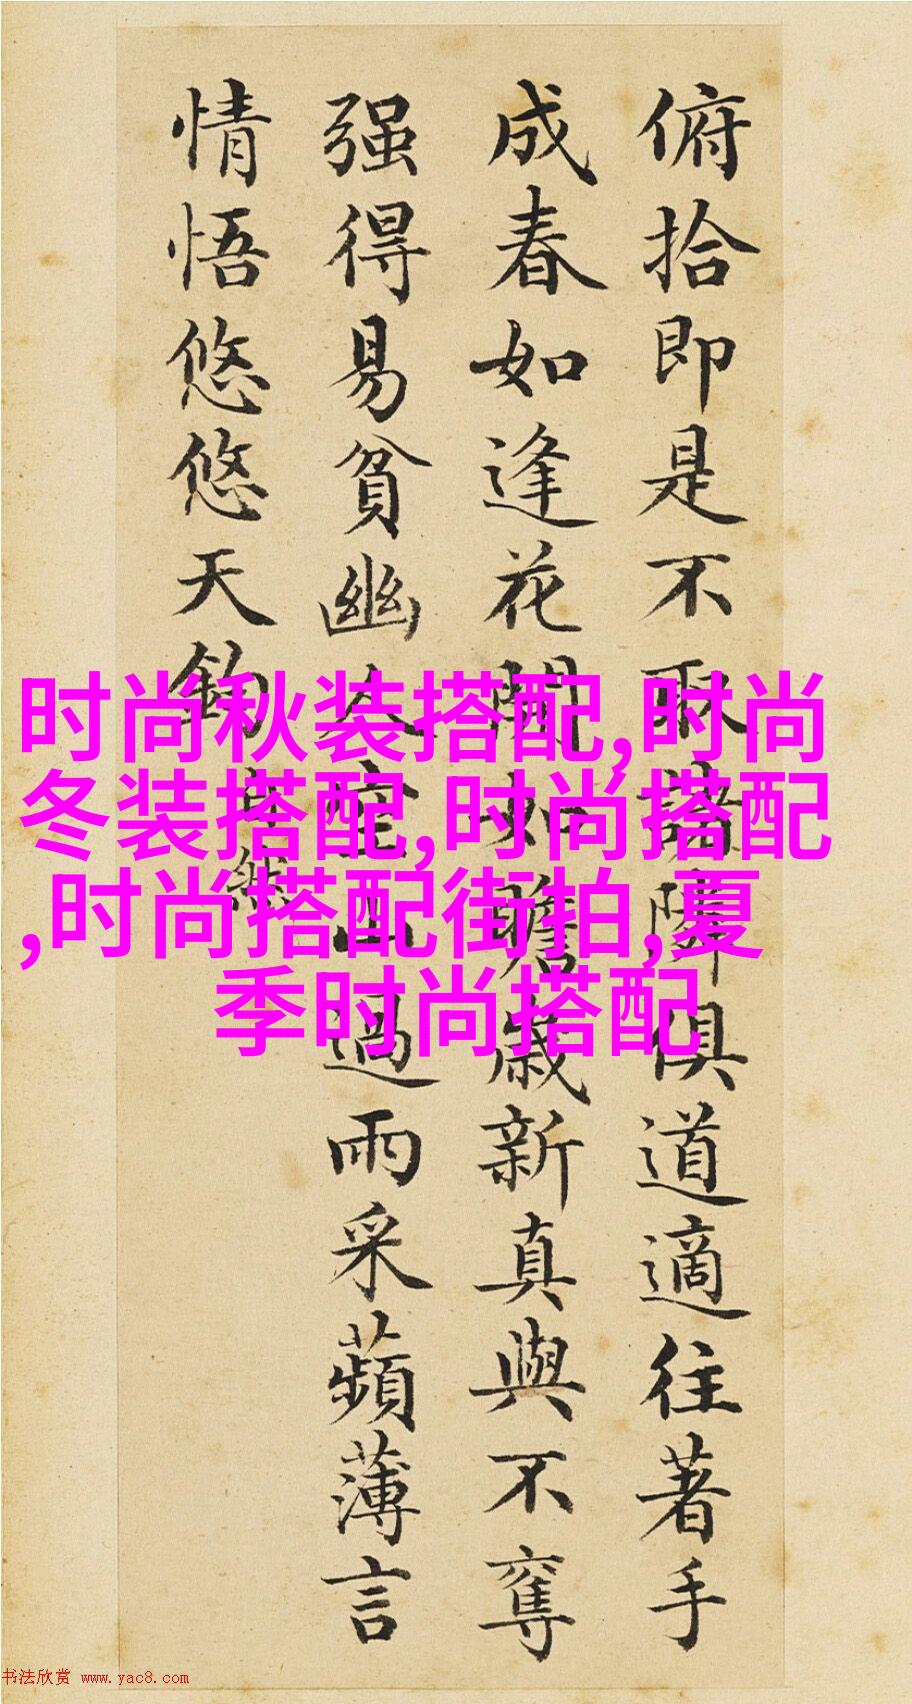 俯拾即是不取諸隣俱道適往著手
成春如逢花開如瞻歲新真與不奪
强得易貧幽人空山過雨采蘋薄言
情悟悠悠天鈞自然
时尚秋装搭配,时尚
冬装搭配,时尚搭配
,时尚搭配街拍,夏
季时尚搭配
书法欣赏 www.yac8.com